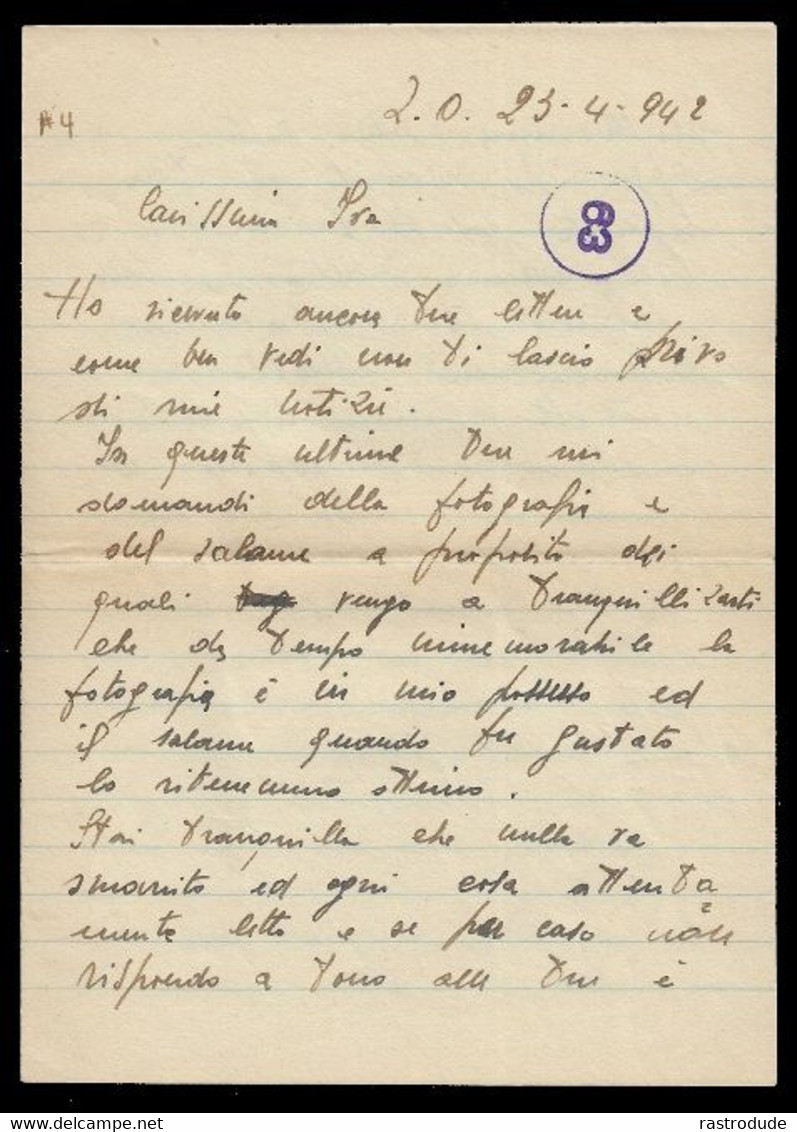 A4
Z.O. 23-4-942
Carissima Iva
63
Ho ricevuto ancora tue lettere e
come ben vedi non ti lascio privo
di mie notizie.
In queste ultime tue mi
domandi della fotografia e
del salame a proposito dei
quali vengo a tranquillizzarti
che da tempo immemorabile la
fotografia è in mio possesso ed
il salame quando fu gustato
lo ritenemmo ottimo.
Stai tranquilla che nulla va
smarrito ed ogni cosa attenta=
mente letto e se per caso non
rispondo a tono alle tue è
Delcampe.net
rastrodude